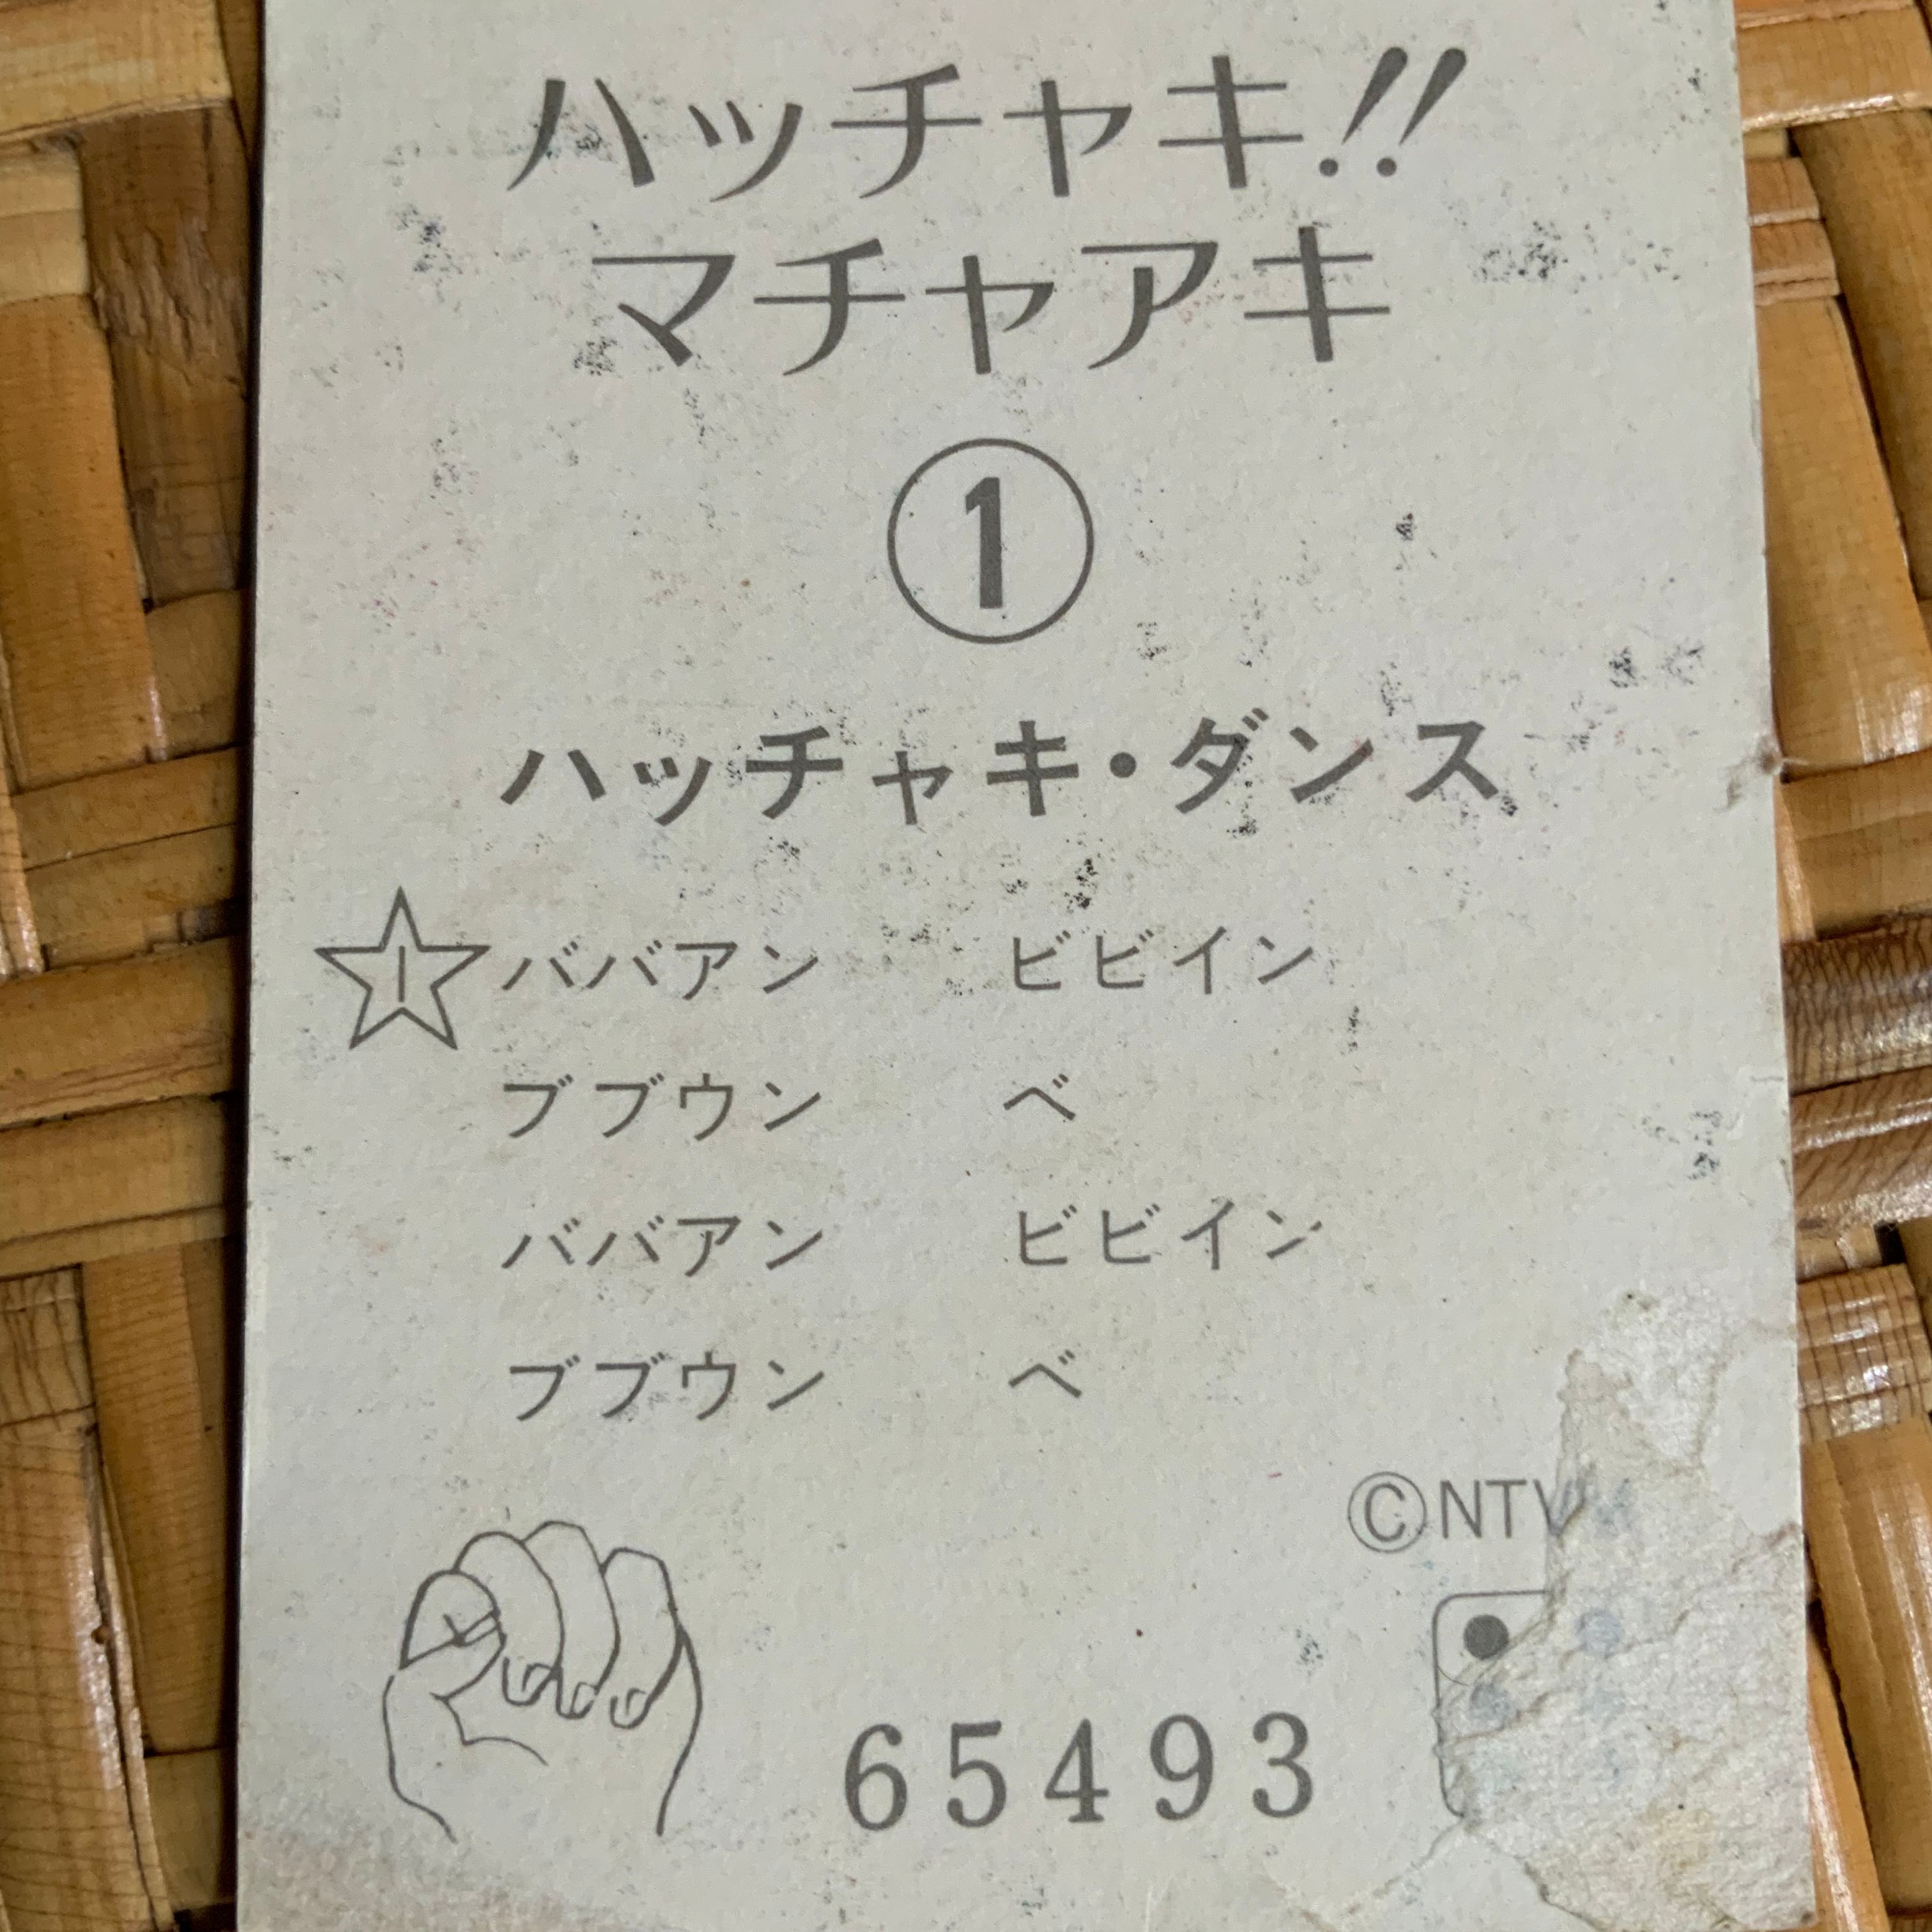 ハッチャキ!!
マチャアキ
①
ハッチャキ・ダンス
1 ババアン ビビイン
ブブウン ベ
ババアン ビビイン
ブブウン ベ
©NTV
65493